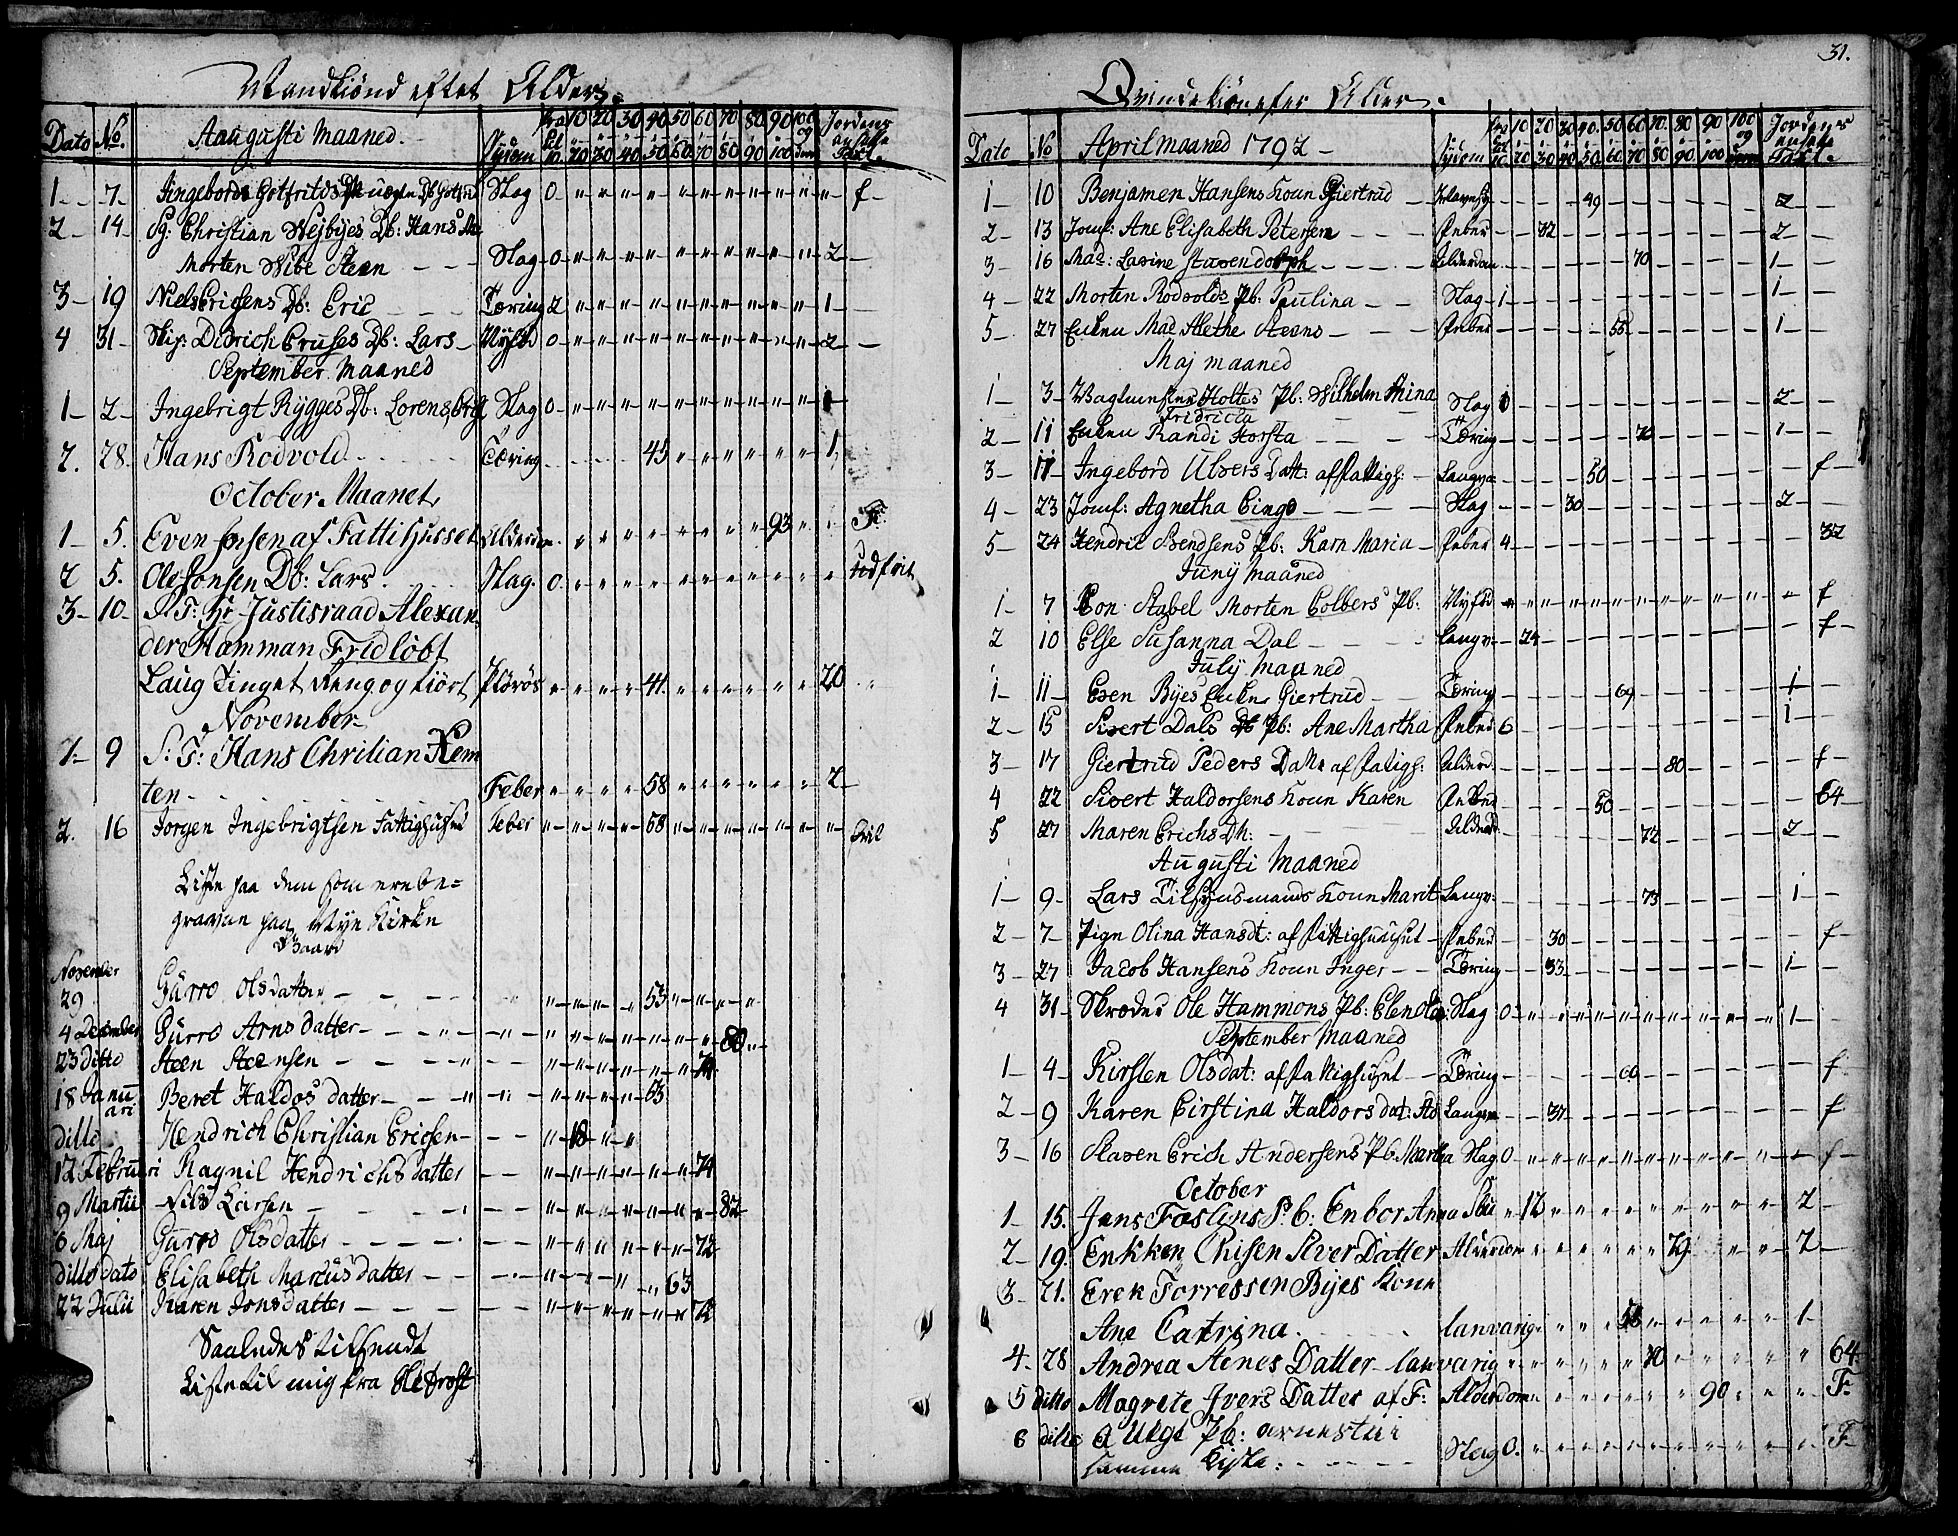 Mandkiønd efter Alder.
Dato No. Augusti Maaned. Sygdom fra til 10 10 20 20 30 30 40 40 50 50 60 60 70 70 80 80 90 90 100 100 og Jordens
1 7 Ingebord Gotfritds Slag 0 f
2 14 Sg: Christian Wejbyes Db: Hans
Morten Wibe Steen Slag 0 2
3 19 Niels Erichsens Db: Eric Tæring 2 1
4 31 Skip: Didrich Cruses Db: Lars 0 2
September Maaned
1 2 Ingebrigt Rygges Db: Lorens Slag 0 1
2. 28. Hans Rodvold Tæring 45 1
October Maanet
1 5. Even Jonsen af Fattihuset Alderdom 93 F:
2 5. Ole Jonsen Db: Lars. Slag. 0
3 10 S: T: Hr Justisraad Alexan
der Hamman Fridlöbt
Laug Tinget 41. 20
November
1 9 S: T: Hans Chrilian Kem
ten Feber 58 2
2. 16 Jorgen Ingebrigtsen Fattighuset Feber 58
Liste paa dem som ere be=
graven paa Nye Kirke
November
29 Gurro Olsdatter 53
4 December Gurro Arnsdatter 80
23 ditto Steen Steensen 74
18 Janu
ari Beret Haldosdatter 53
ditto Hendrich Christian Ericsen 18
12 Februari Ragnil Hendrichsdatter 74
9 Martii Nils Larsen 82
6 Maj Gurro Olsdatter 72
ditto dato Elisabeth Marcusdatter 63
22 Julii Karen Jonsdatter 72
Saaledes tilsendt
Liste til mig fra
31.
Qvindekiøn efter Alder.
Dato No April maaned 1792 Sygdom fra til 10 10 20 20 30 30 40 40 50 50 60 60 70 70 80 80 90 90 100 100 og Jordens
1 10 Benjamen Hansens Koun Giertrud 49 2
2 13 Jomf: Ane Elisabeth Petersen Feber 32 2
3 16 Mad: Lavine Stavendorph Alderdom 70 1
4 22 Morten Rodvolds Pb: Paulina Slag 1 1
5 27 Enken Mad Alethe Steens Feber 55 1
Maj maaned
1 3 Holtes Pb: Wilhelm Mina
Fridricia Slag 0 2
2 11 Enken Randi Horsta Tæring 1
3 11 Ingebord Ulvers Datt: af Fattigh: Langv 50 f
4 23 Jomf: Agnetha Bing Slag 30 2
5 24 Hendric Svendsens Pb: Karn Maria Feber 4 32
Juny Maaned
1 7 Stabel Morten Colbers Pb: f
2 10 Else Susanna Dal Langv 24 f
July Maaned
1 11 Even Byes Enke Giertrud Tæring 69 1
2 15 Sivert Dals Pb: Ane Martha Feber 6 1
3 17 Giertrud Peders Datter af Fatigh: Alderd 80 f
4 22 Sivert Haldorsens Koun Karen 50 64
5 27 Maren Erichs Dh: 72 2
Augusti Maaned
1 9 Lars Tilsynsmands Koun Marit Langv 73 1
2 7 Pige Olina Hansdt: af Fattighuuset Feber 30 f
3 27 Jacob Hansens Koun Inger Tæring 33 1
4 31 Skræder Ole Hammons Pb: Slag 0 1
September Maaned
1 4 Kirsten Olsdat: af Fattighuset Tæring 60 f
2 9 Karen Cirstina Haldorsdat: Langv 37 f
3 16 Slaven Erich Andersens Pb. Martha Slag 0 f
October
1 15. Jens Foslins P: b: Enbor Anna 12 2
2 19. Enkken Chisen Siver Datter Alderdom 79 2
3 21. Erek Torressen Byes Kone
Ane Catrina. lanvarig 58 1
4 28 Andrea Stenes Datter lanvarig 70 64
5 ditto Magrete Ivers Datter af F: Alderdom 90 F:
6 ditto Pb:
samme Kiste. Slag 0. F